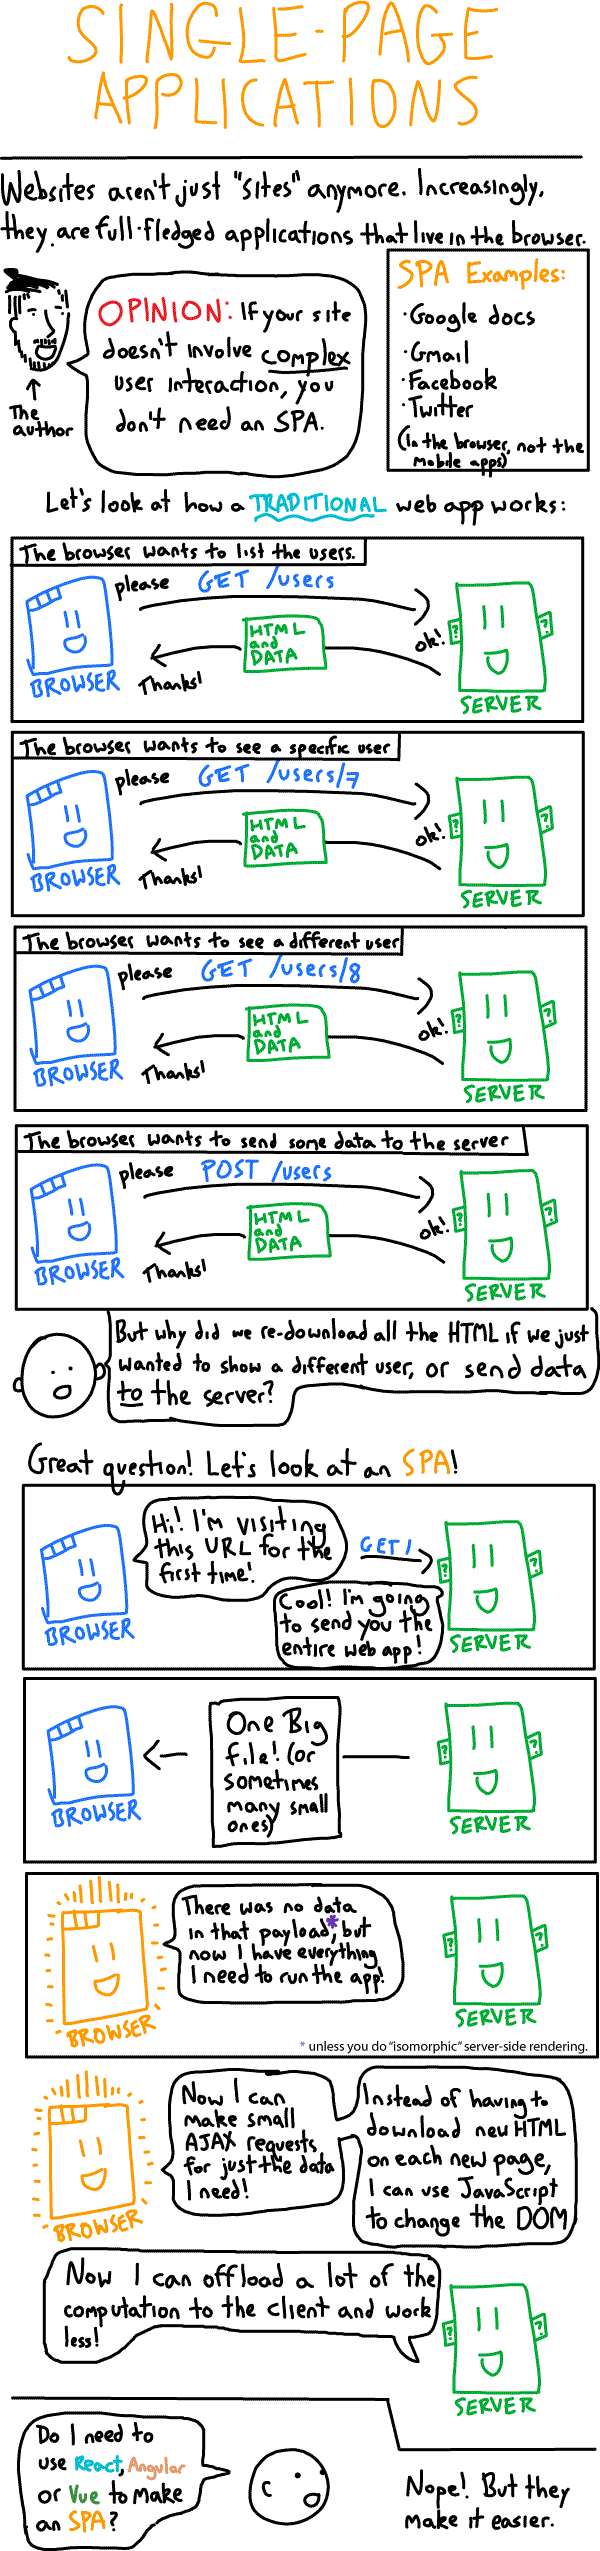 SINGLE-PAGE
APPLICATIONS
Websites aren't just "sites" anymore. Increasingly,
they are full-fledged applications that live in the browser.
The
author
OPINION: If your site
doesn't involve
complex
user interaction, you
don't need an SPA.
SPA Examples:
·Google docs
·Gmail
·Facebook
·Twitter
(in the browser, not the
mobile apps)
Let's look at how a TRADITIONAL web app works:
The browser wants to list the users.
please GET /users
ok!
HTML
and
DATA
Thanks!
BROWSER
SERVER
The browser wants to see a specific user
please GET /users/7
ok!
HTML
and
DATA
Thanks!
BROWSER
SERVER
The browser wants to see a different user
please GET /users/8
ok!
HTML
and
DATA
Thanks!
BROWSER
SERVER
The browser wants to send some data to the server
please POST /users
ok!
HTML
and
DATA
Thanks!
BROWSER
SERVER
But why did we re-download all the HTML if we just
wanted to show a different user, or send data
to the server?
Great question! Let's look at an SPA!
Hi! I'm visiting
this URL for the
first time!
GET /
Cool! I'm going
to send you the
entire web app!
BROWSER
SERVER
One Big
file! (or
sometimes
many small
ones)
BROWSER
SERVER
There was no data
in that payload*, but
now I have everything
I need to run the app!
BROWSER
SERVER
* unless you do "isomorphic" server-side rendering.
Now I can
make small
AJAX requests
for just the data
I need!
Instead of having to
download new HTML
on each new page,
I can use JavaScript
to change the DOM
BROWSER
Now I can offload a lot of the
computation to the client and work
less!
SERVER
Do I need to
use React, Angular
or Vue to make
an SPA?
Nope! But they
make it easier.